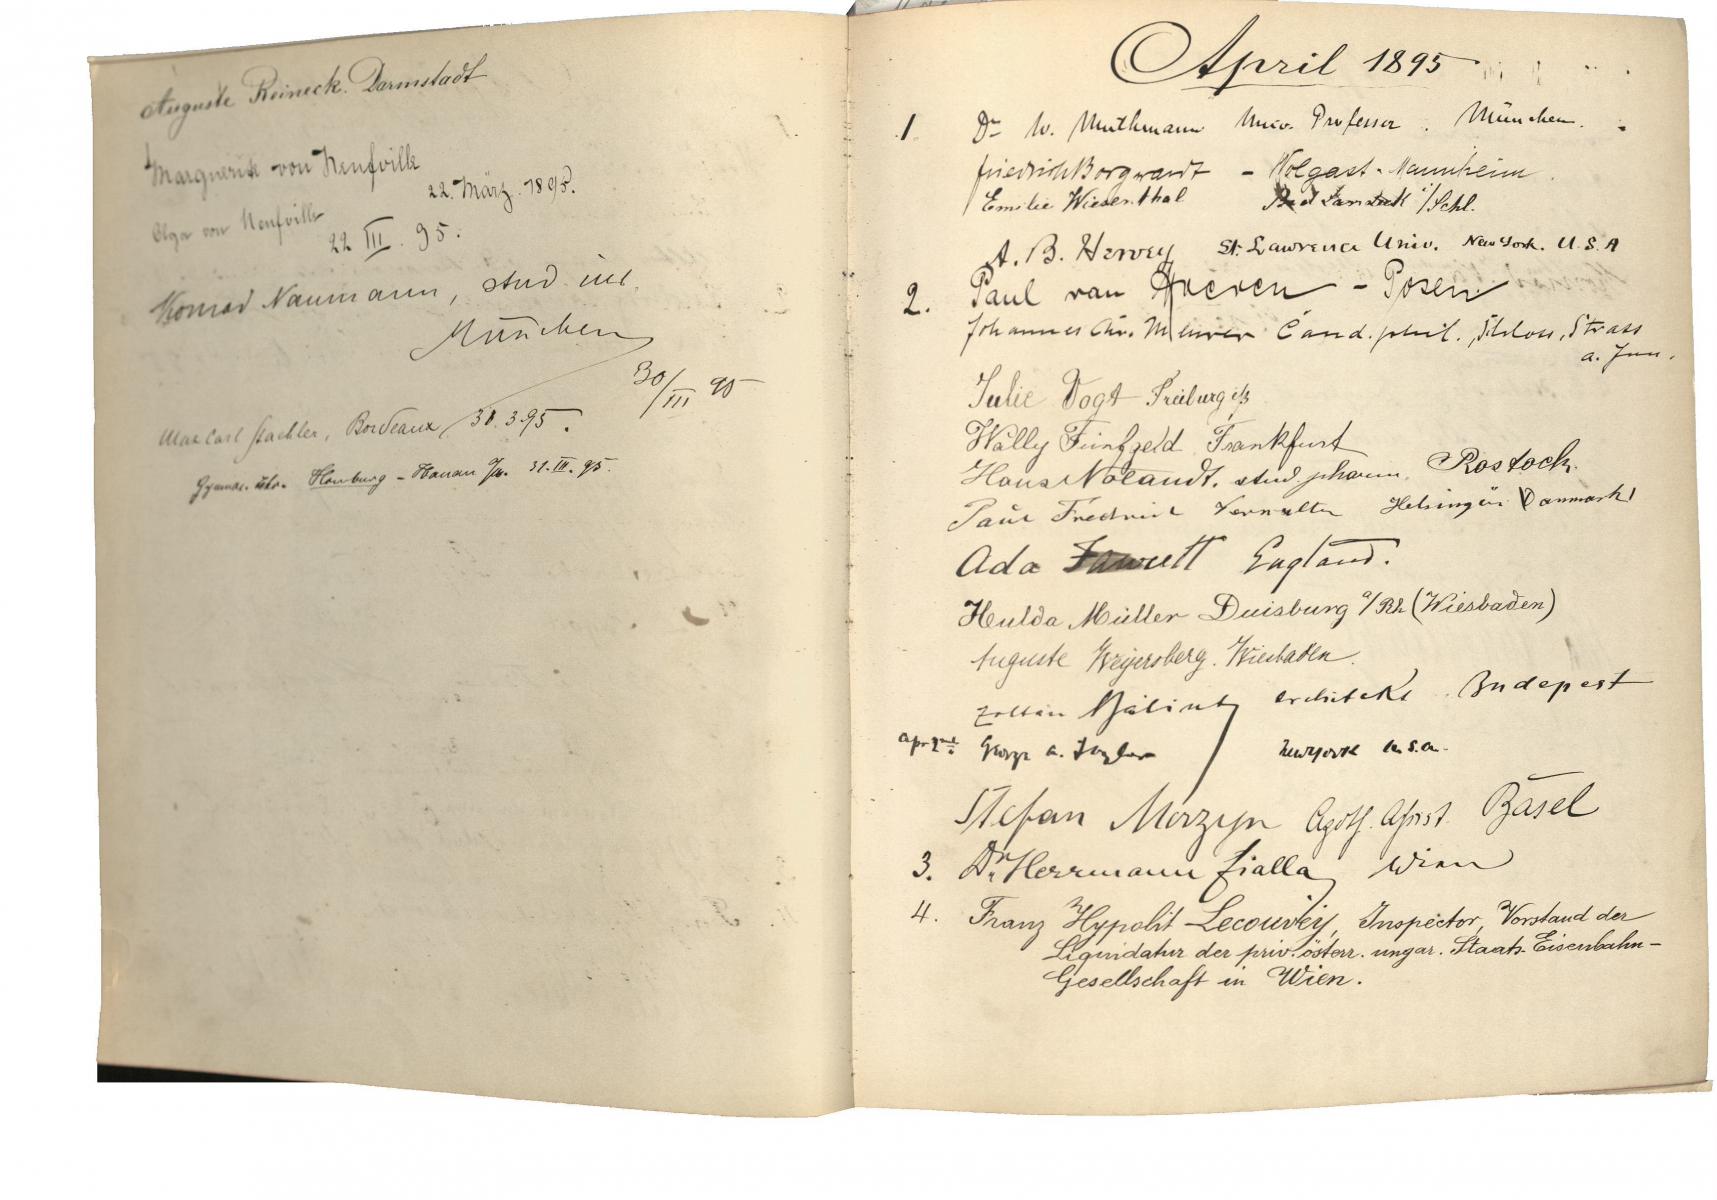 Auguste Reineck. Darmstadt
Marguerite von Neufville
22. März. 1895.
Olga von Neufville
22 III. 95.
Konrad Naumann, stud. iur.
München
30/III 95
Max Carl Staehler, Bordeaux, 30.3.95.
Homburg - Hanau a/M. 31. III. 95.
April 1895
1 Dr W. Muthmann Univ. Professor. München.
Friedrich Borgwardt - Wolgast - Mannheim.
Emilie Wiesenthal Bad Landeck i/Schl.
A. B. Hervey St. Lawrence Univ. New York. U.S.A
2. Paul van - Posen
Johannes Chr. Meurer Cand. phil., Schloss, Strass
a. Inn.
Julie Vogt Freiburg i/B
Wally Fünfgeld Frankfurt
Hans Nolandt. stud. pharm. Rostock.
Paul Fredrich Verwalter Helsingör Danmark
Ada Fawcett England.
Hulda Müller Duisburg a/Rh (Wiesbaden)
Auguste Weyersberg. Wiesbaden.
Zoltán Bálint architekt. Budapest
Apr 2nd George A. Taylor New York U.S.A.
Stefan Morzyn Basel
3. Dr. Herrmann Fialla Wien
4. Franz Hypolit Lecouvey, Inspector, Vorstand der
Liquidatur der priv. österr. ungar. Staats-Eisenbahn-
Gesellschaft in Wien.